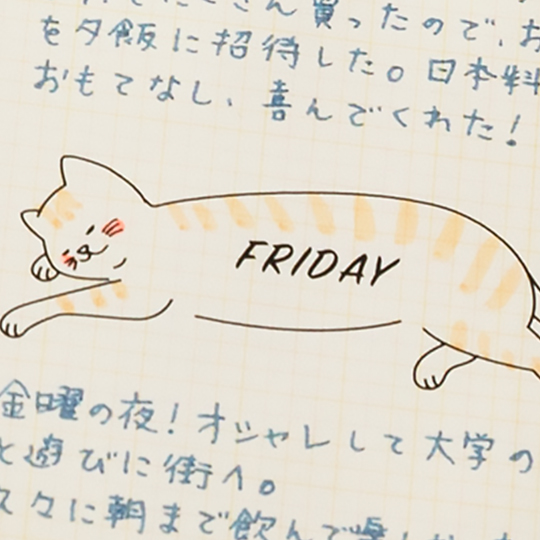 たくさん買ったので、お
を夕飯に招待した。日本料
おもてなし、喜んでくれた！
FRIDAY
金曜の夜！オシャレして大学の
と遊びに街へ。
久々に朝まで飲んで楽し